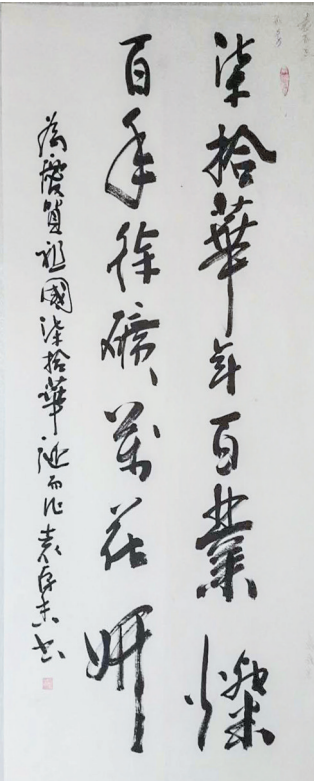 柒拾華年百業燦
百年徐礦萬花妍
為慶賀祖國柒拾華誕而作 袁存東書